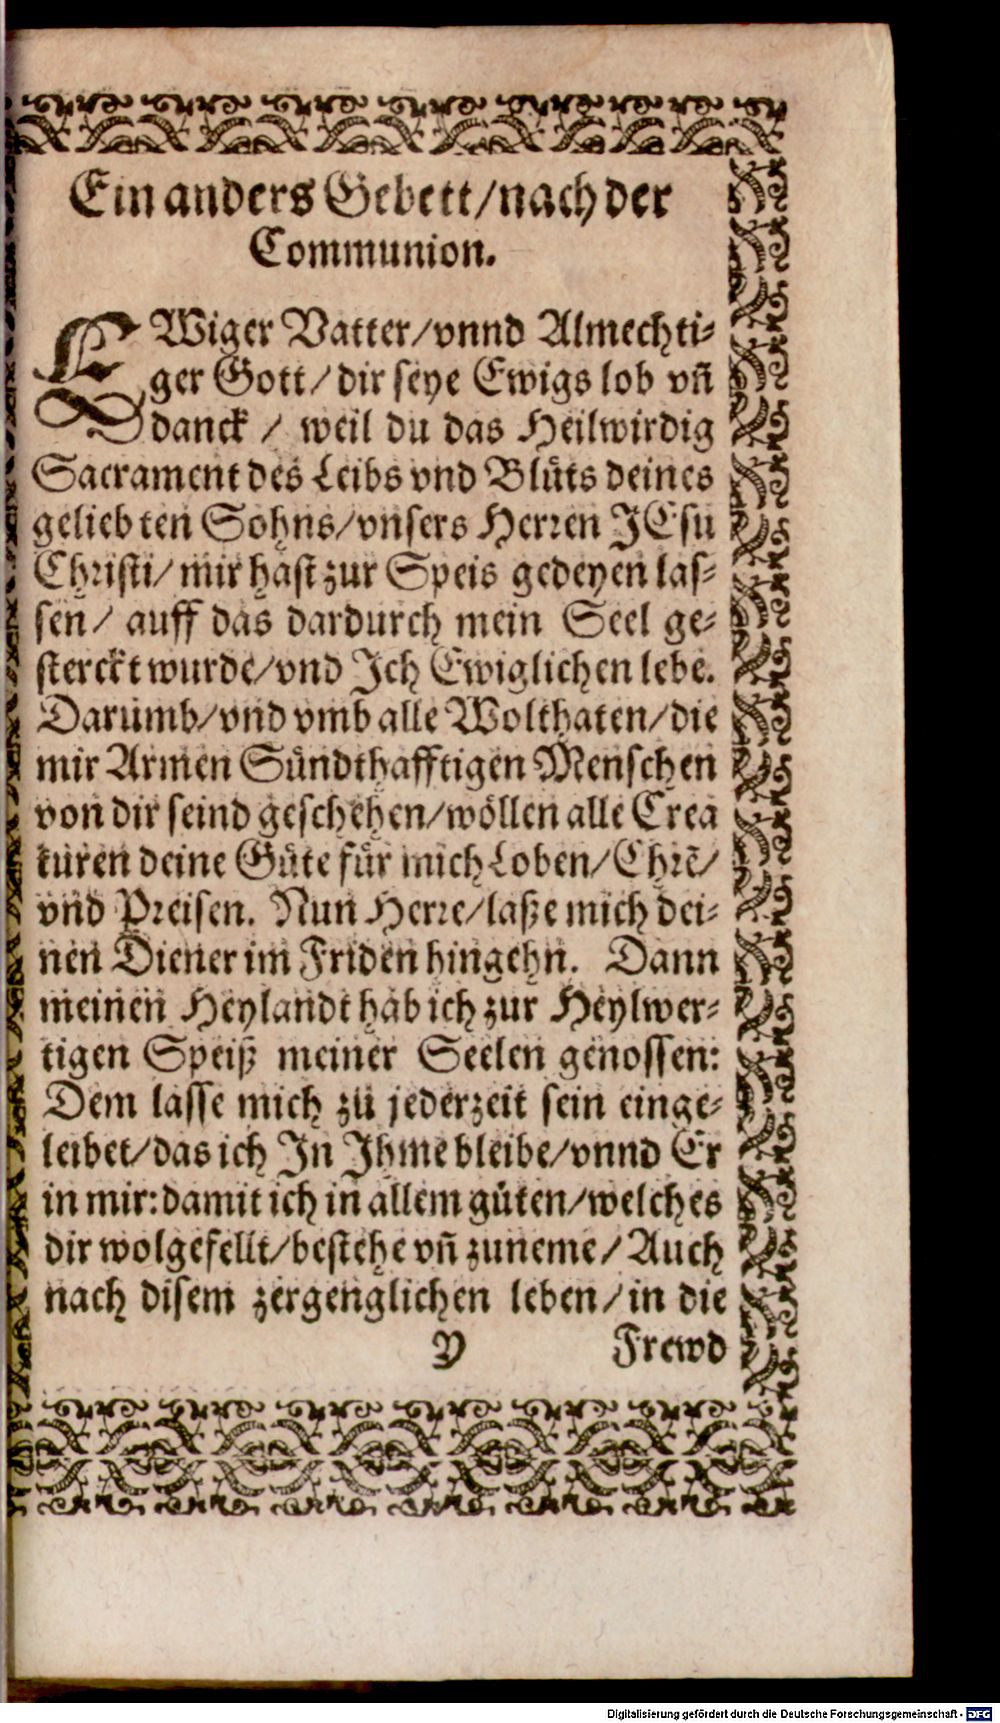 Ein anders Gebett/nach der
Communion.
EWiger Vatter/vnnd Almechti-
ger Gott/dir seye Ewigs lob vñ
danck/ weil du das Heilwirdig
Sacrament des Leibs vnd Blůts deines
geliebten Sohns/vnsers Herren JEsu
Christi/mir hast zur Speis gedeyen las-
sen/ auff das dardurch mein Seel ge-
sterckt wurde/vnd Ich Ewiglichen lebe.
Darumb/vnd vmb alle Wolthaten/die
mir Armen Sündthafftigen Menschen
von dir seind geschehen/wöllen alle Crea
turen deine Güte für mich Loben/Ehrē/
vnd Preisen. Nun Herre/laße mich dei-
nen Diener im Friden hingehn. Dann
meinen Heylandt hab ich zur Heylwer-
tigen Speiß meiner Seelen genossen:
Dem lasse mich zů jederzeit sein einge-
leibet/das ich In Ihme bleibe/vnnd Er
in mir:damit ich in allem gůten/welches
dir wolgefellt/bestehe vñ zuneme/Auch
nach disem zergenglichen leben/in die
Y Frewd
Digitalisierung gefördert durch die Deutsche Forschungsgemeinschaft - DFG